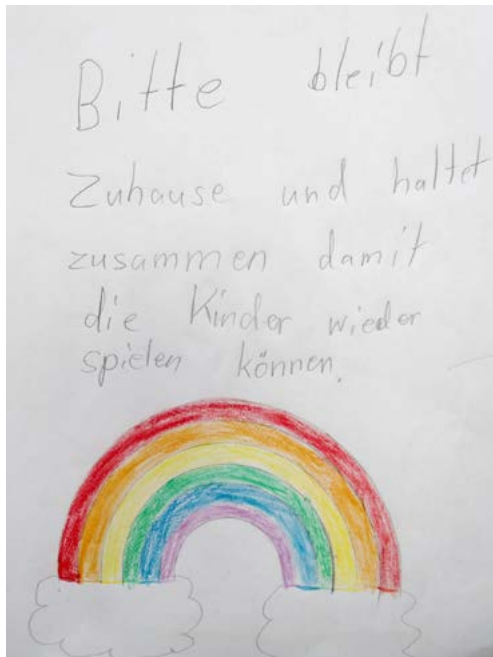 Bitte bleibt
Zuhause und haltet
zusammen damit
die Kinder wieder
spielen können.